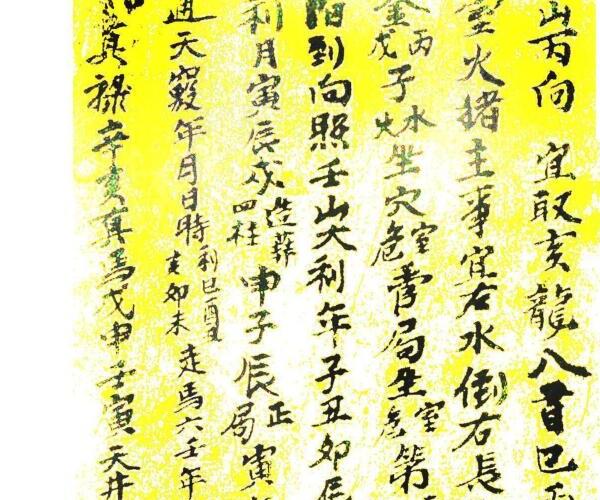 山丙向 宜取亥龍八首巳
火猪主事宜右水倒右長
金丙戊子水火坐穴室危局坐室危第
到向照壬山大利年子丑卯辰
利月寅辰戌造葬四柱申子辰正局寅
通天竅年月日時利巳酉丑亥卯未走馬六壬年
真祿辛亥真馬戊申壬寅天井